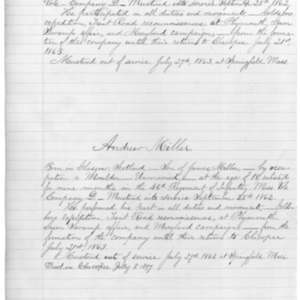 Vols. Company D – Mustered into service Septem. 26" 1862.
He participated in all duties and movements – Goldsboro
expedition, Trent Road reconnaissance, at Plymouth, Gum
Swamp affair, and Maryland campaign – from the forma-
tion of the company until their return to Chicopee July 21st
1863.
Mustered out of service July 29th 1863 at Springfield Mass.
Andrew Miller
Born in Glasgow, Scotland – Son of James Miller – by occu-
pation a Moulder – at the age of 18 enlisted
for nine months in the 46th Regiment of Infantry, Mass. Vols.
Company D – Mustered into service September 26th 1862.
He performed his part in all duties and movements – Golds-
boro expedition, Trent Road reconnaissance, at Plymouth
Gum Swamp affair, and Maryland campaign – from the
formation of the company until their return to Chicopee
July 21st 1863.
Mustered out of service July 29th 1863 at Springfield Mass.
Died in Chicopee July